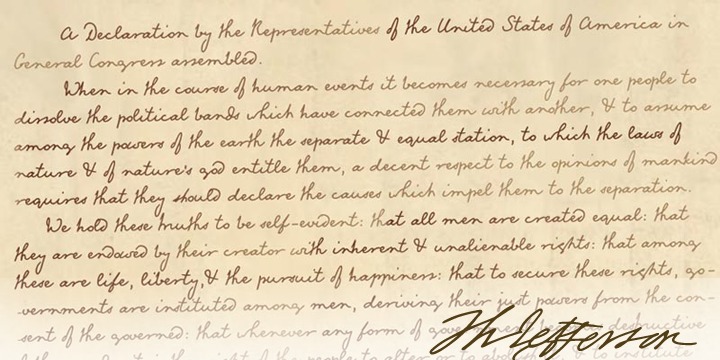 A Declaration by the Representatives of the United States of America in
General Congress assembled.
When in the course of human events it becomes necessary for one people to
dissolve the political bands which have connected them with another, & to assume
among the powers of the earth the separate & equal station, to which the laws of
nature & of nature's god entitle them, a decent respect to the opinions of mankind
requires that they should declare the causes which impel them to the separation.
We hold these truths to be self-evident: that all men are created equal: that
they are endowed by their creator with inherent & unalienable rights: that among
these are life, liberty, & the pursuit of happiness: that to secure these rights, go-
vernments are instituted among men, deriving their just powers from the con-
sent of the governed: that whenever any form of destructive
the people to alter or to & to institute
Th Jefferson